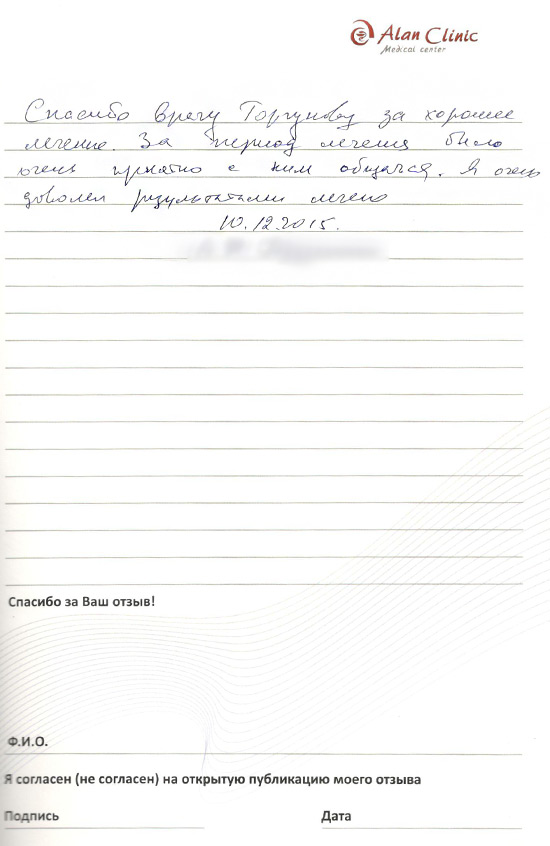 Alan Clinic
Medical center
Спасибо врачу Торгунову за хорошее
лечение. За период лечения было
очень приятно с ним общатся. Я очень
доволен результатами лечено
10.12.2015.
Спасибо за Ваш отзыв!
Ф.И.О.
Я согласен (не согласен) на открытую публикацию моего отзыва
Подпись Дата